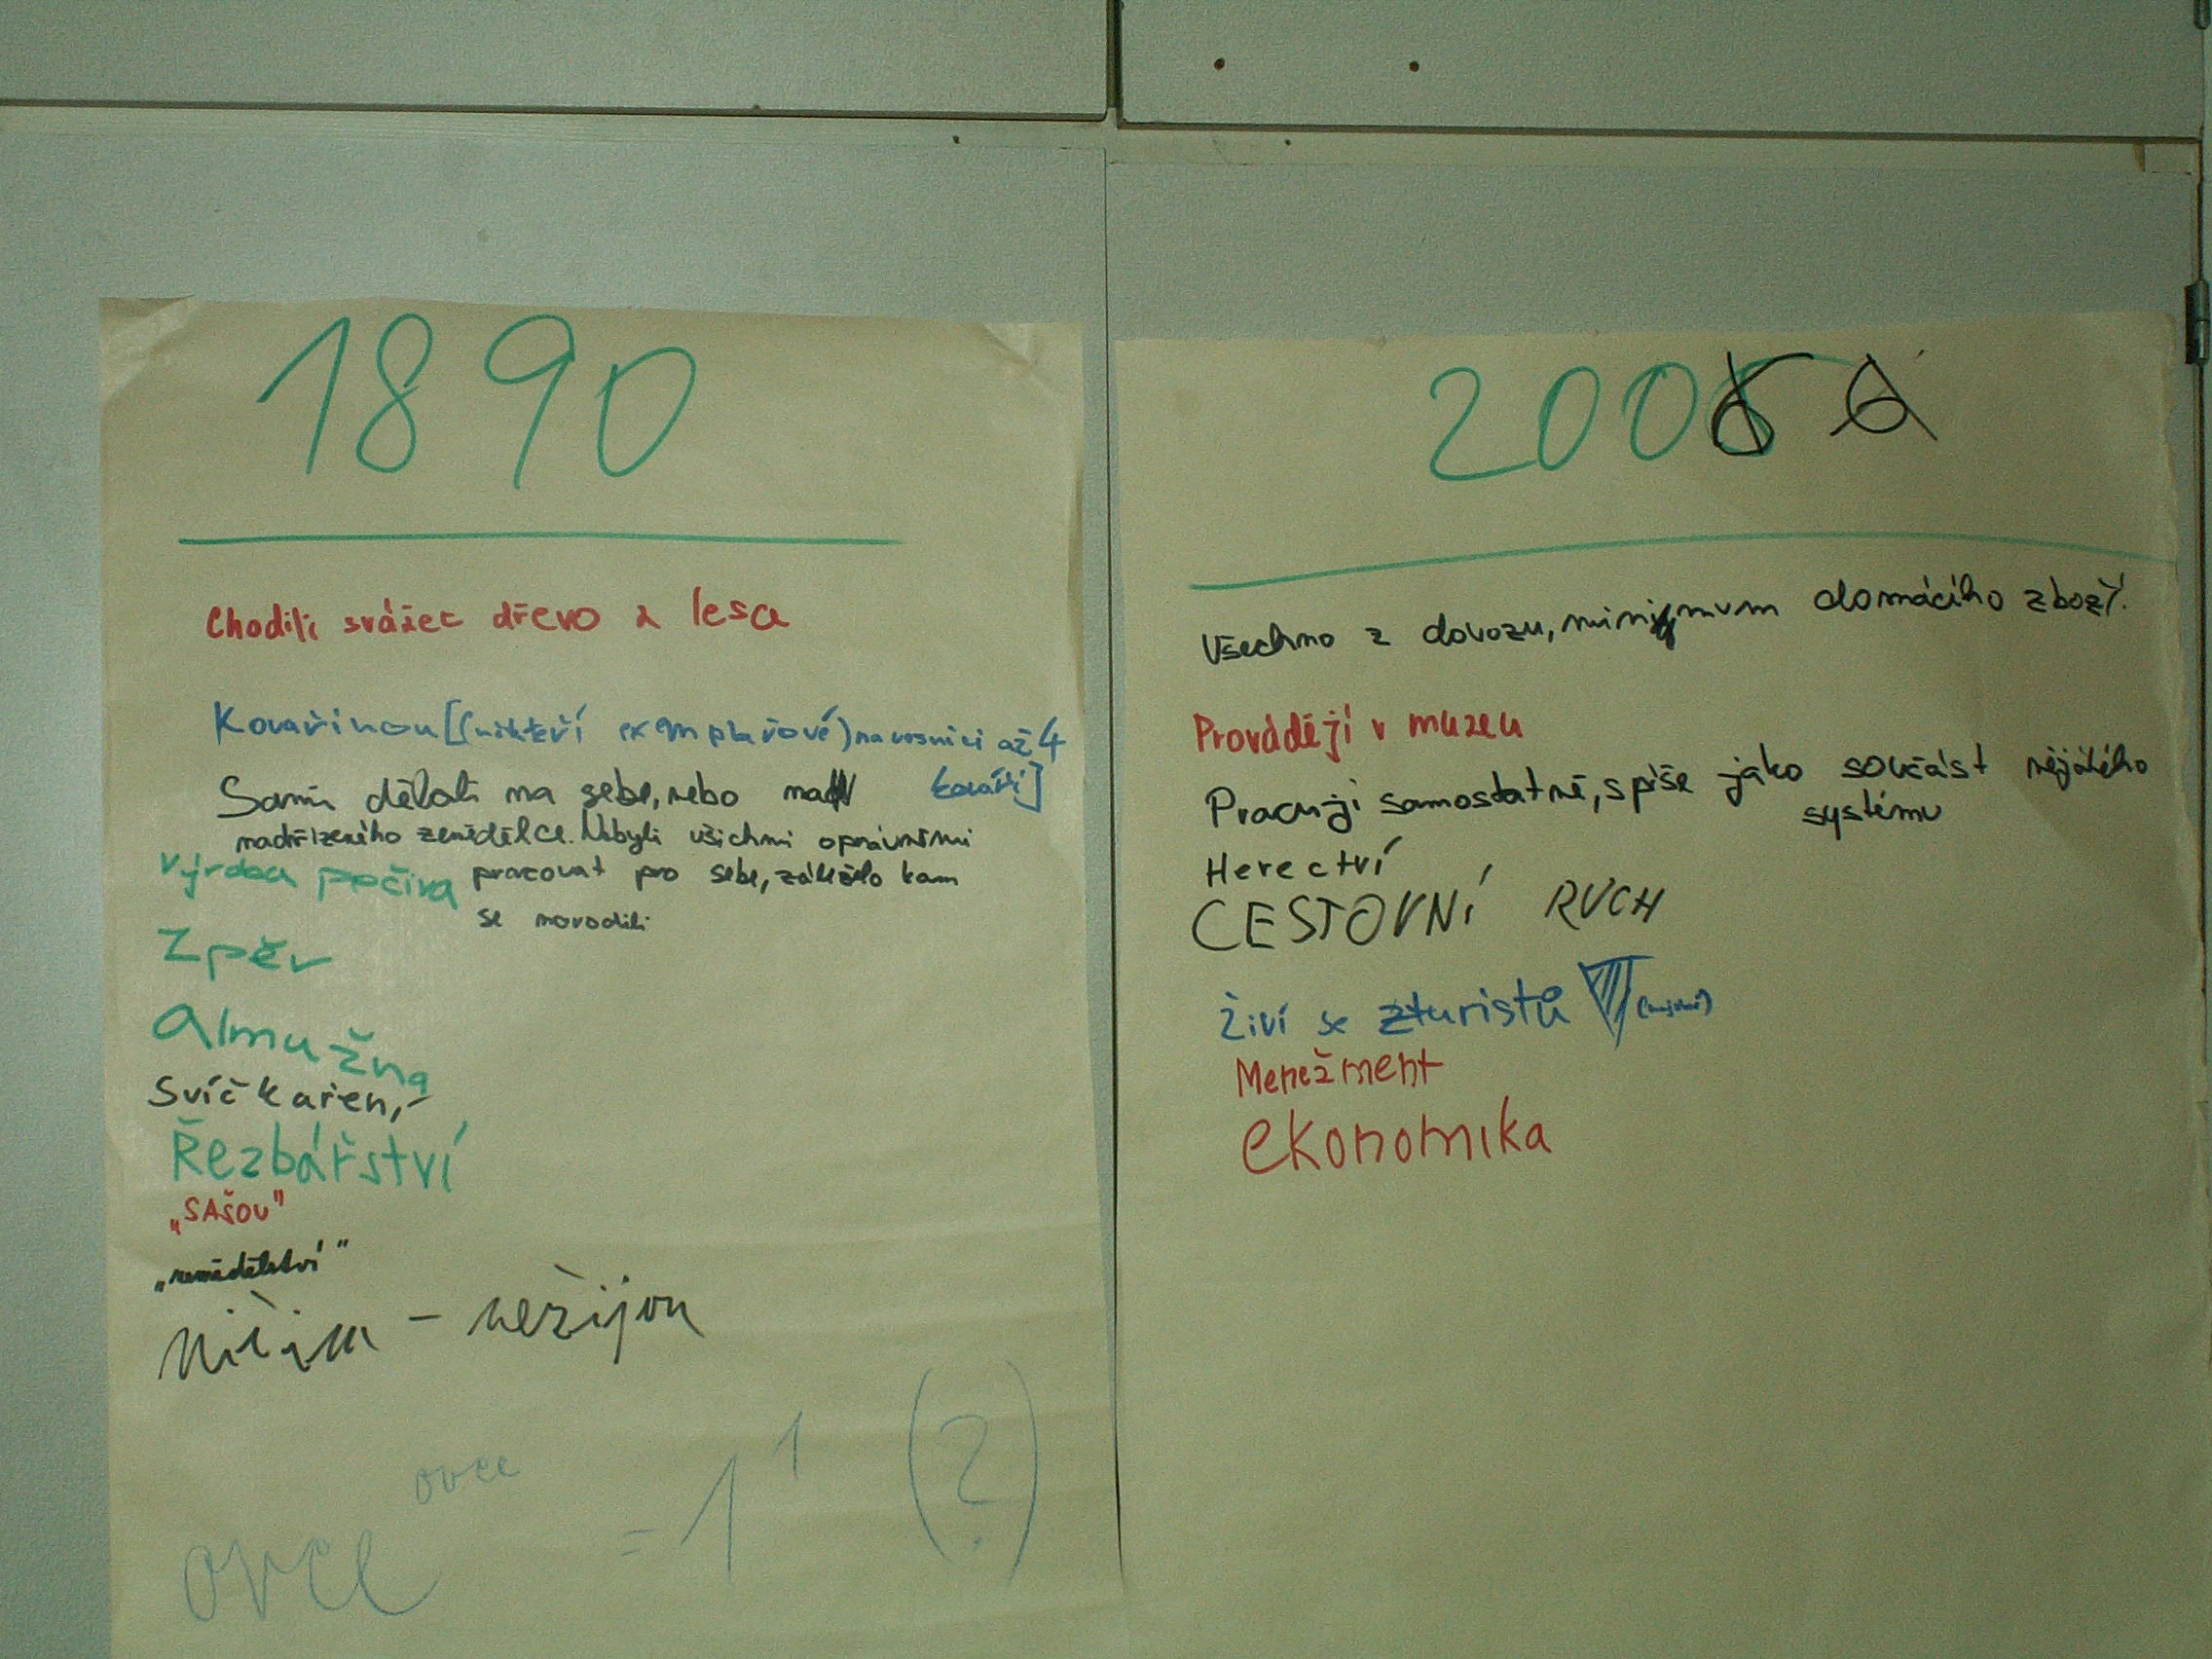 1890
Chodili svážet dřevo z lesa
Kovařinou [(někteří exemplářové) na vesnici až 4 kováři]
Sami dělali na sebe, nebo na
nadřízeného zemědělce. Nebyli všichni oprávněni
pracovat pro sebe, záleželo kam
se narodili
Výroba pečiva
Zpěv
almužna
Svíčkařen,
Řezbářství
„SAšou"
„zemědělství"
Ničím - nežijou
ovce ovce = 1 1 (?)
2006
Všechno z dovozu, minimum domácího zboží.
Provádějí v muzeu
Pracují samostatně, spíše jako součást nějakého
systému
Herectví
CESTOVNÍ RUCH
Živí se z turistů
Menežment
ekonomika